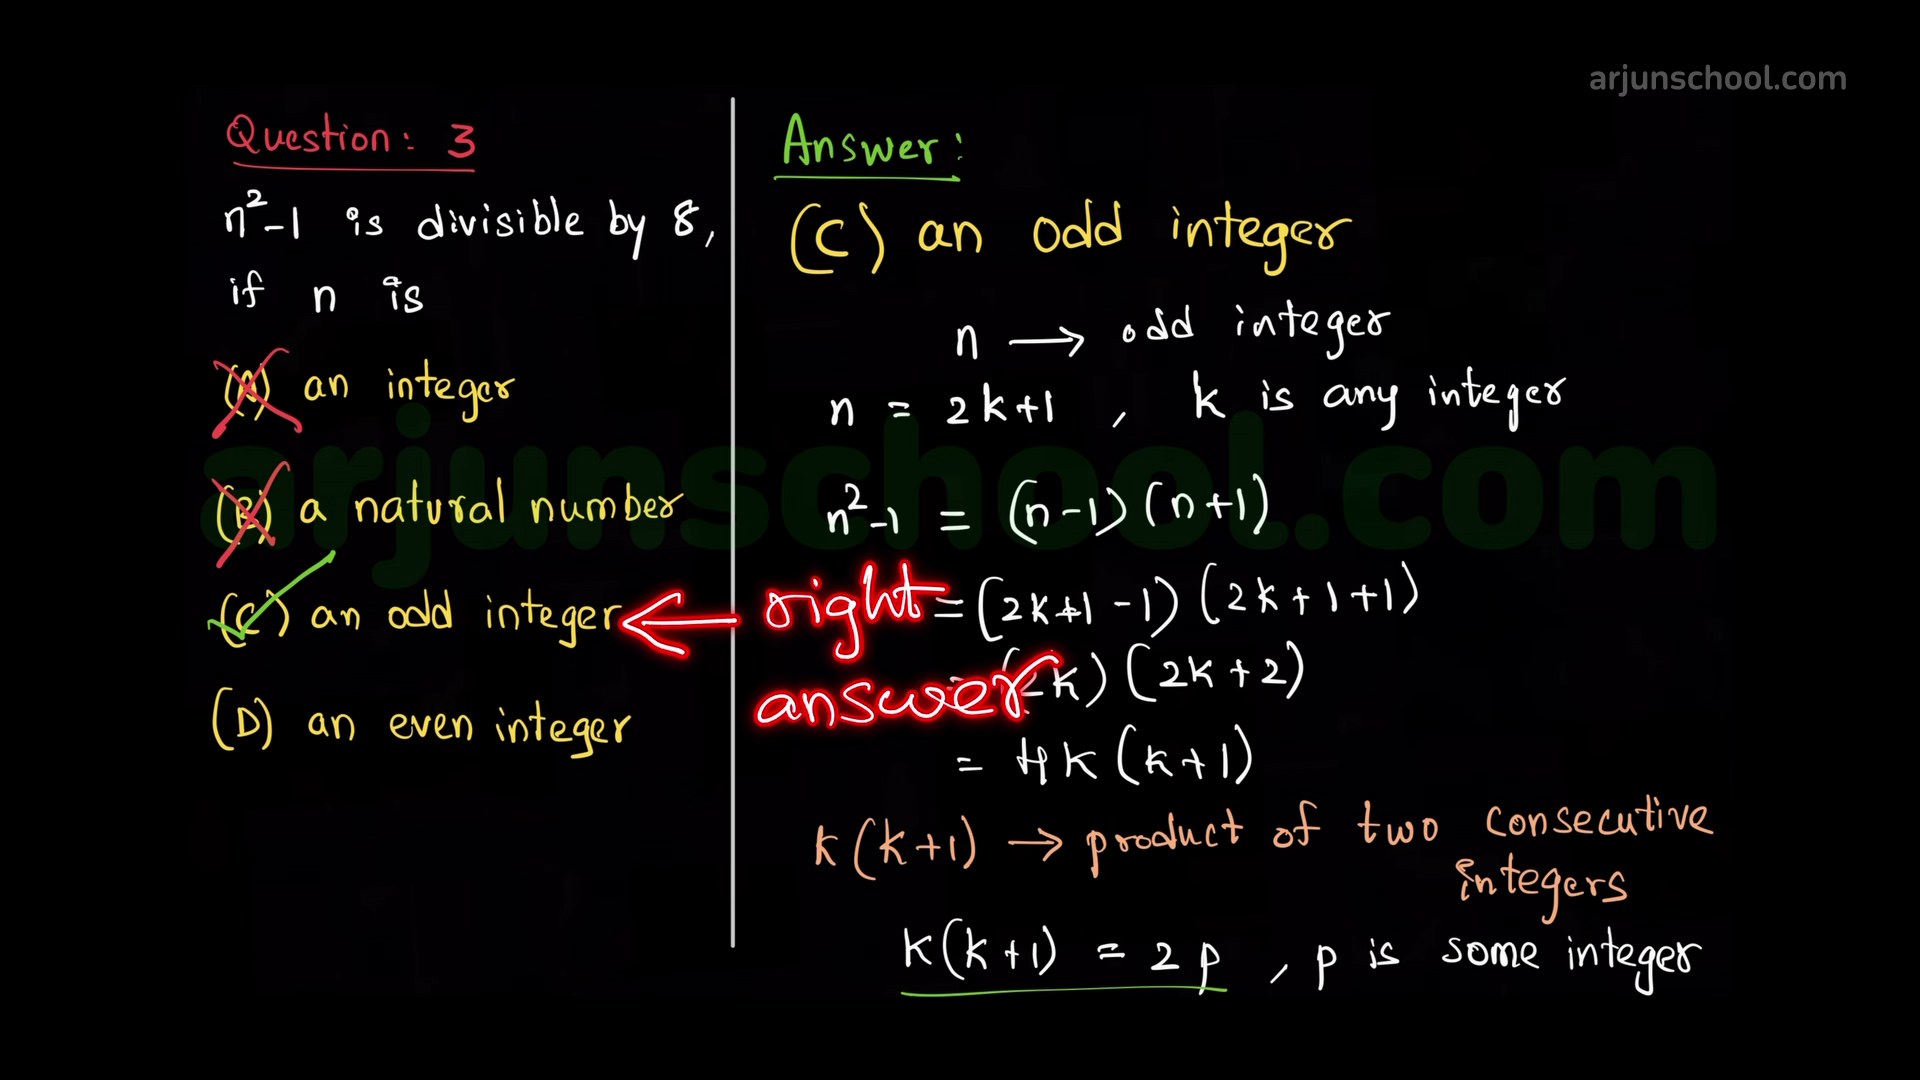 arjunschool.com
Question: 3
n²-1 is divisible by 8,
if n is
(A) an integer
(B) a natural number
(C) an odd integer
(D) an even integer
Answer:
(C) an odd integer
n → odd integer
n = 2k+1 , k is any integer
n²-1 = (n-1)(n+1)
= (2k+1-1)(2k+1+1)
= (2k)(2k+2)
= 4k(k+1)
k(k+1) → product of two consecutive
integers
k(k+1) = 2p , p is some integer
← right
answer
arjunschool.com